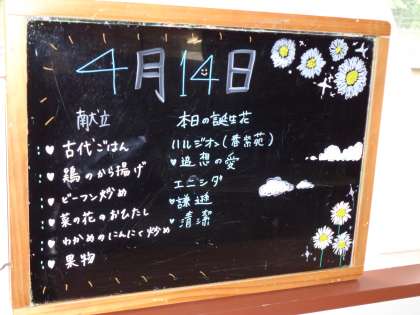 4月14日
献立
♥古代ごはん
♥鶏のから揚げ
♥ビーフン炒め
♥菜の花のおひたし
♥わかめのにんにく炒め
♥果物
本日の誕生花
ハルジオン(春紫苑)
♥追想の愛
エニシダ
♥謙遜
♥清潔